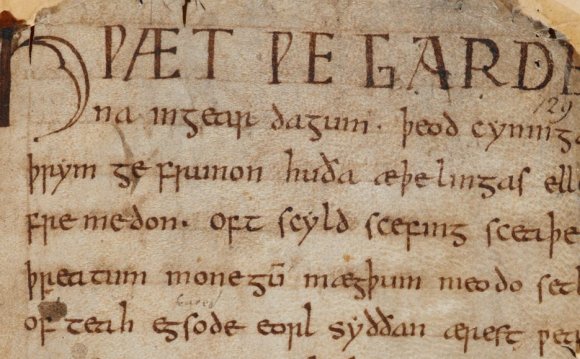 HǷÆT ǷE GARDE
na ingear dagum. þeod cyninga
129
þrym ge frunon huða æþelingas ell
fre medon. oft scyld scefing sceaþe
þreatum monegū mægþum meodo setl
of teah egsode eorl syððan ærest ƿear